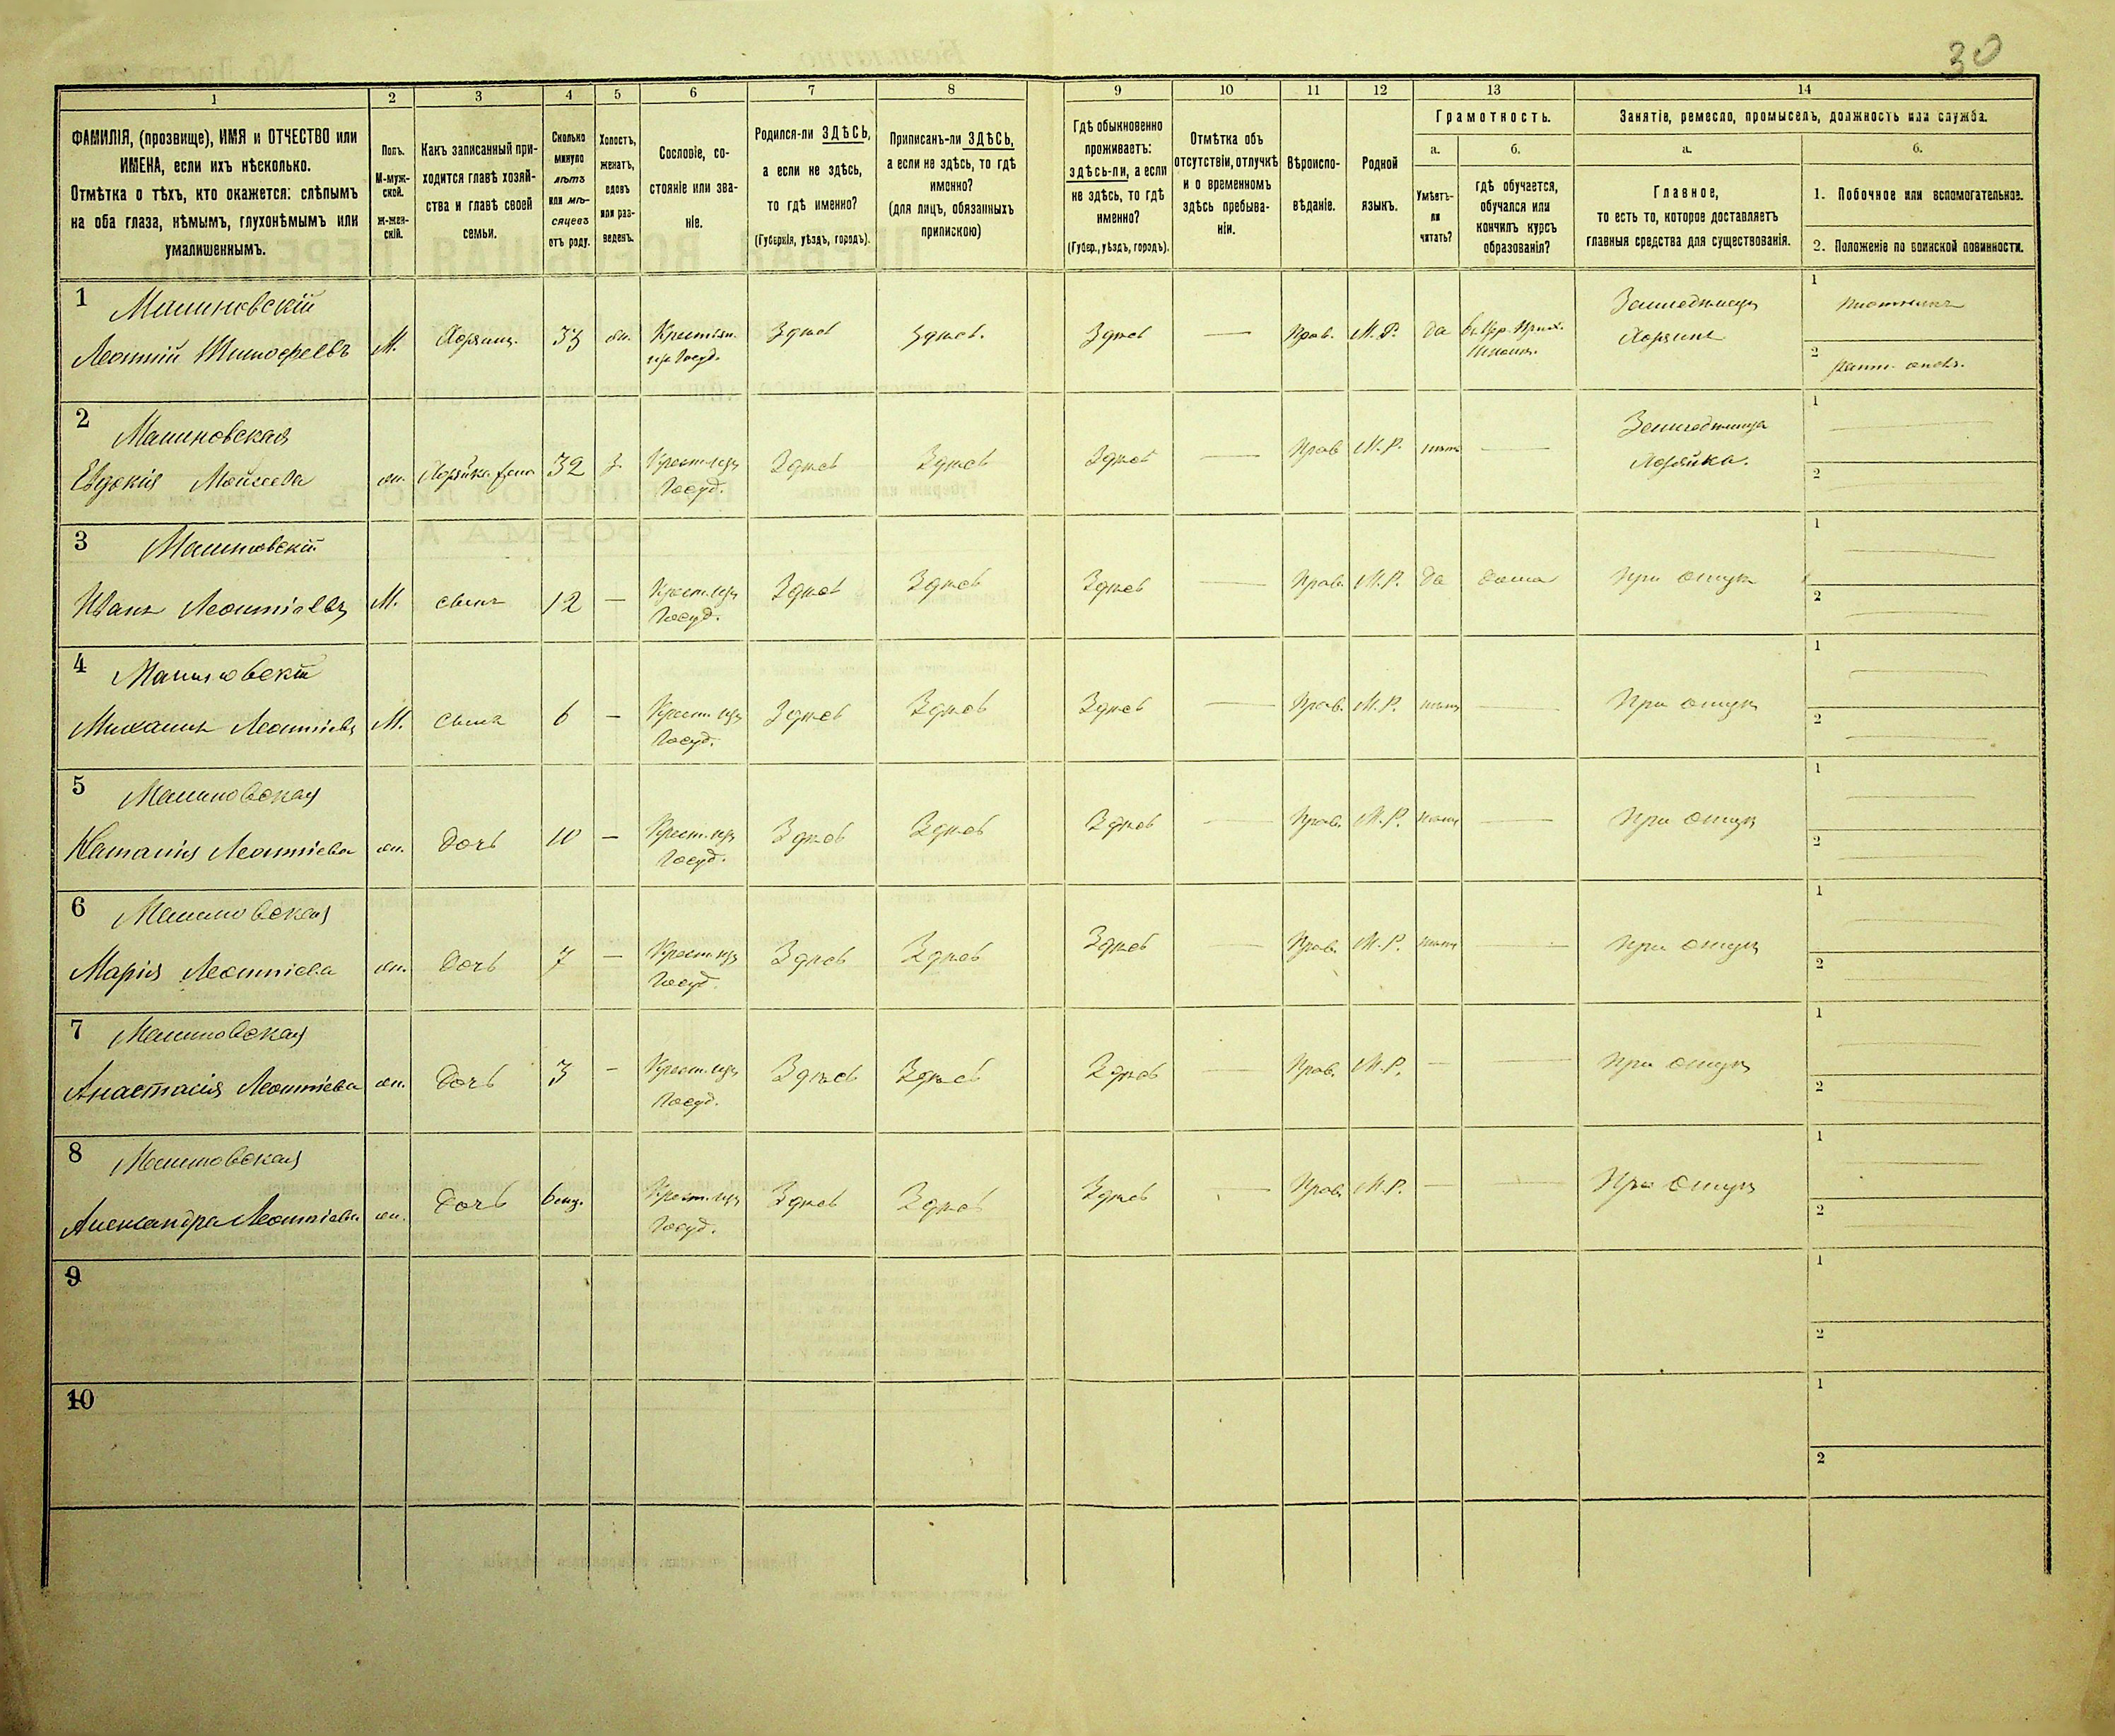 30
1 2 3 4 5 6 7 8 9 10 11 12 13 14
ФАМИЛІЯ, (прозвище), ИМЯ и ОТЧЕСТВО или
ИМЕНА, если ихъ нѣсколько.
Отмѣтка о тѣхъ, кто окажется: слѣпымъ
на оба глаза, нѣмымъ, глухонѣмымъ или
умалишеннымъ.
Полъ.
М-муж-
ской.
ж-жен-
скій.
Какъ записанный при-
ходится главѣ хозяй-
ства и главѣ своей
семьи.
Сколько
минуло
лѣтъ
или мѣ-
сяцевъ
отъ роду.
Холостъ,
женатъ,
вдовъ
или раз-
веденъ.
Сословіе, со-
стояніе или зва-
ніе.
Родился-ли ЗДѢСЬ,
а если не здѣсь,
то гдѣ именно?
(Губернія, уѣздъ, городъ).
Приписанъ-ли ЗДѢСЬ,
а если не здѣсь, то гдѣ
именно?
(для лицъ, обязанныхъ
припискою)
Гдѣ обыкновенно
проживаетъ:
здѣсь-ли, а если
не здѣсь, то гдѣ
именно?
(Губер., уѣздъ, городъ).
Отмѣтка объ
отсутствіи, отлучкѣ
и о временномъ
здѣсь пребыва-
ніи.
Вѣроиспо-
вѣданіе.
Родной
языкъ.
Грамотность.
а.
Умѣетъ-
ли
читать?
б.
гдѣ обучается,
обучался или
кончилъ курсъ
образованія?
Занятіе, ремесло, промыселъ, должность или служба.
а.
Главное,
то есть то, которое доставляетъ
главныя средства для существованія.
б.
1. Побочное или вспомогательное.
2. Положеніе по воинской повинности.
1 Малиновскій
Леонтій Тимофеевъ М. Хозяинъ 33 ж. Крестьян. изъ Госуд. Здѣсь Здѣсь. Здѣсь — Прав. М.Р. да
Земледѣлецъ
Хозяинъ
1 Плотникъ
2
2 Малиновская
Евдокія Моисеева ж. Хозяйка жена 32 З. Крест. изъ Госуд. Здѣсь Здѣсь Здѣсь — Прав М.Р. нѣтъ —
Земледѣлица
Хозяйка.
1
2
3 Малиновскій
Иванъ Леонтіевъ М. сынъ 12 — Крест. изъ Госуд. Здѣсь Здѣсь Здѣсь — Прав. М.Р. да дома При отцѣ
1
2
4 Малиновскій
Михаилъ Леонтіевъ М. сынъ 6 — Крест. изъ Госуд. Здѣсь Здѣсь Здѣсь — Прав. М.Р. нѣтъ — При отцѣ
1
2
5 Малиновская
Наталія Леонтіева ж. дочь 10 — Крест. изъ Госуд. Здѣсь Здѣсь Здѣсь — Прав. М.Р. нѣтъ — При отцѣ
1
2
6 Малиновская
Марія Леонтіева ж. дочь 7 — Крест. изъ Госуд. Здѣсь Здѣсь Здѣсь — Прав. М.Р. нѣтъ — При отцѣ
1
2
7 Малиновская
Анастасія Леонтіева ж. дочь 3 — Крест. изъ Госуд. Здѣсь Здѣсь Здѣсь — Прав. М.Р. — — При отцѣ
1
2
8 Малиновская
Александра Леонтіева ж. дочь 6 Крест. изъ Госуд. Здѣсь Здѣсь Здѣсь — Прав. М.Р. — — При отцѣ
1
2
9
1
2
10
1
2